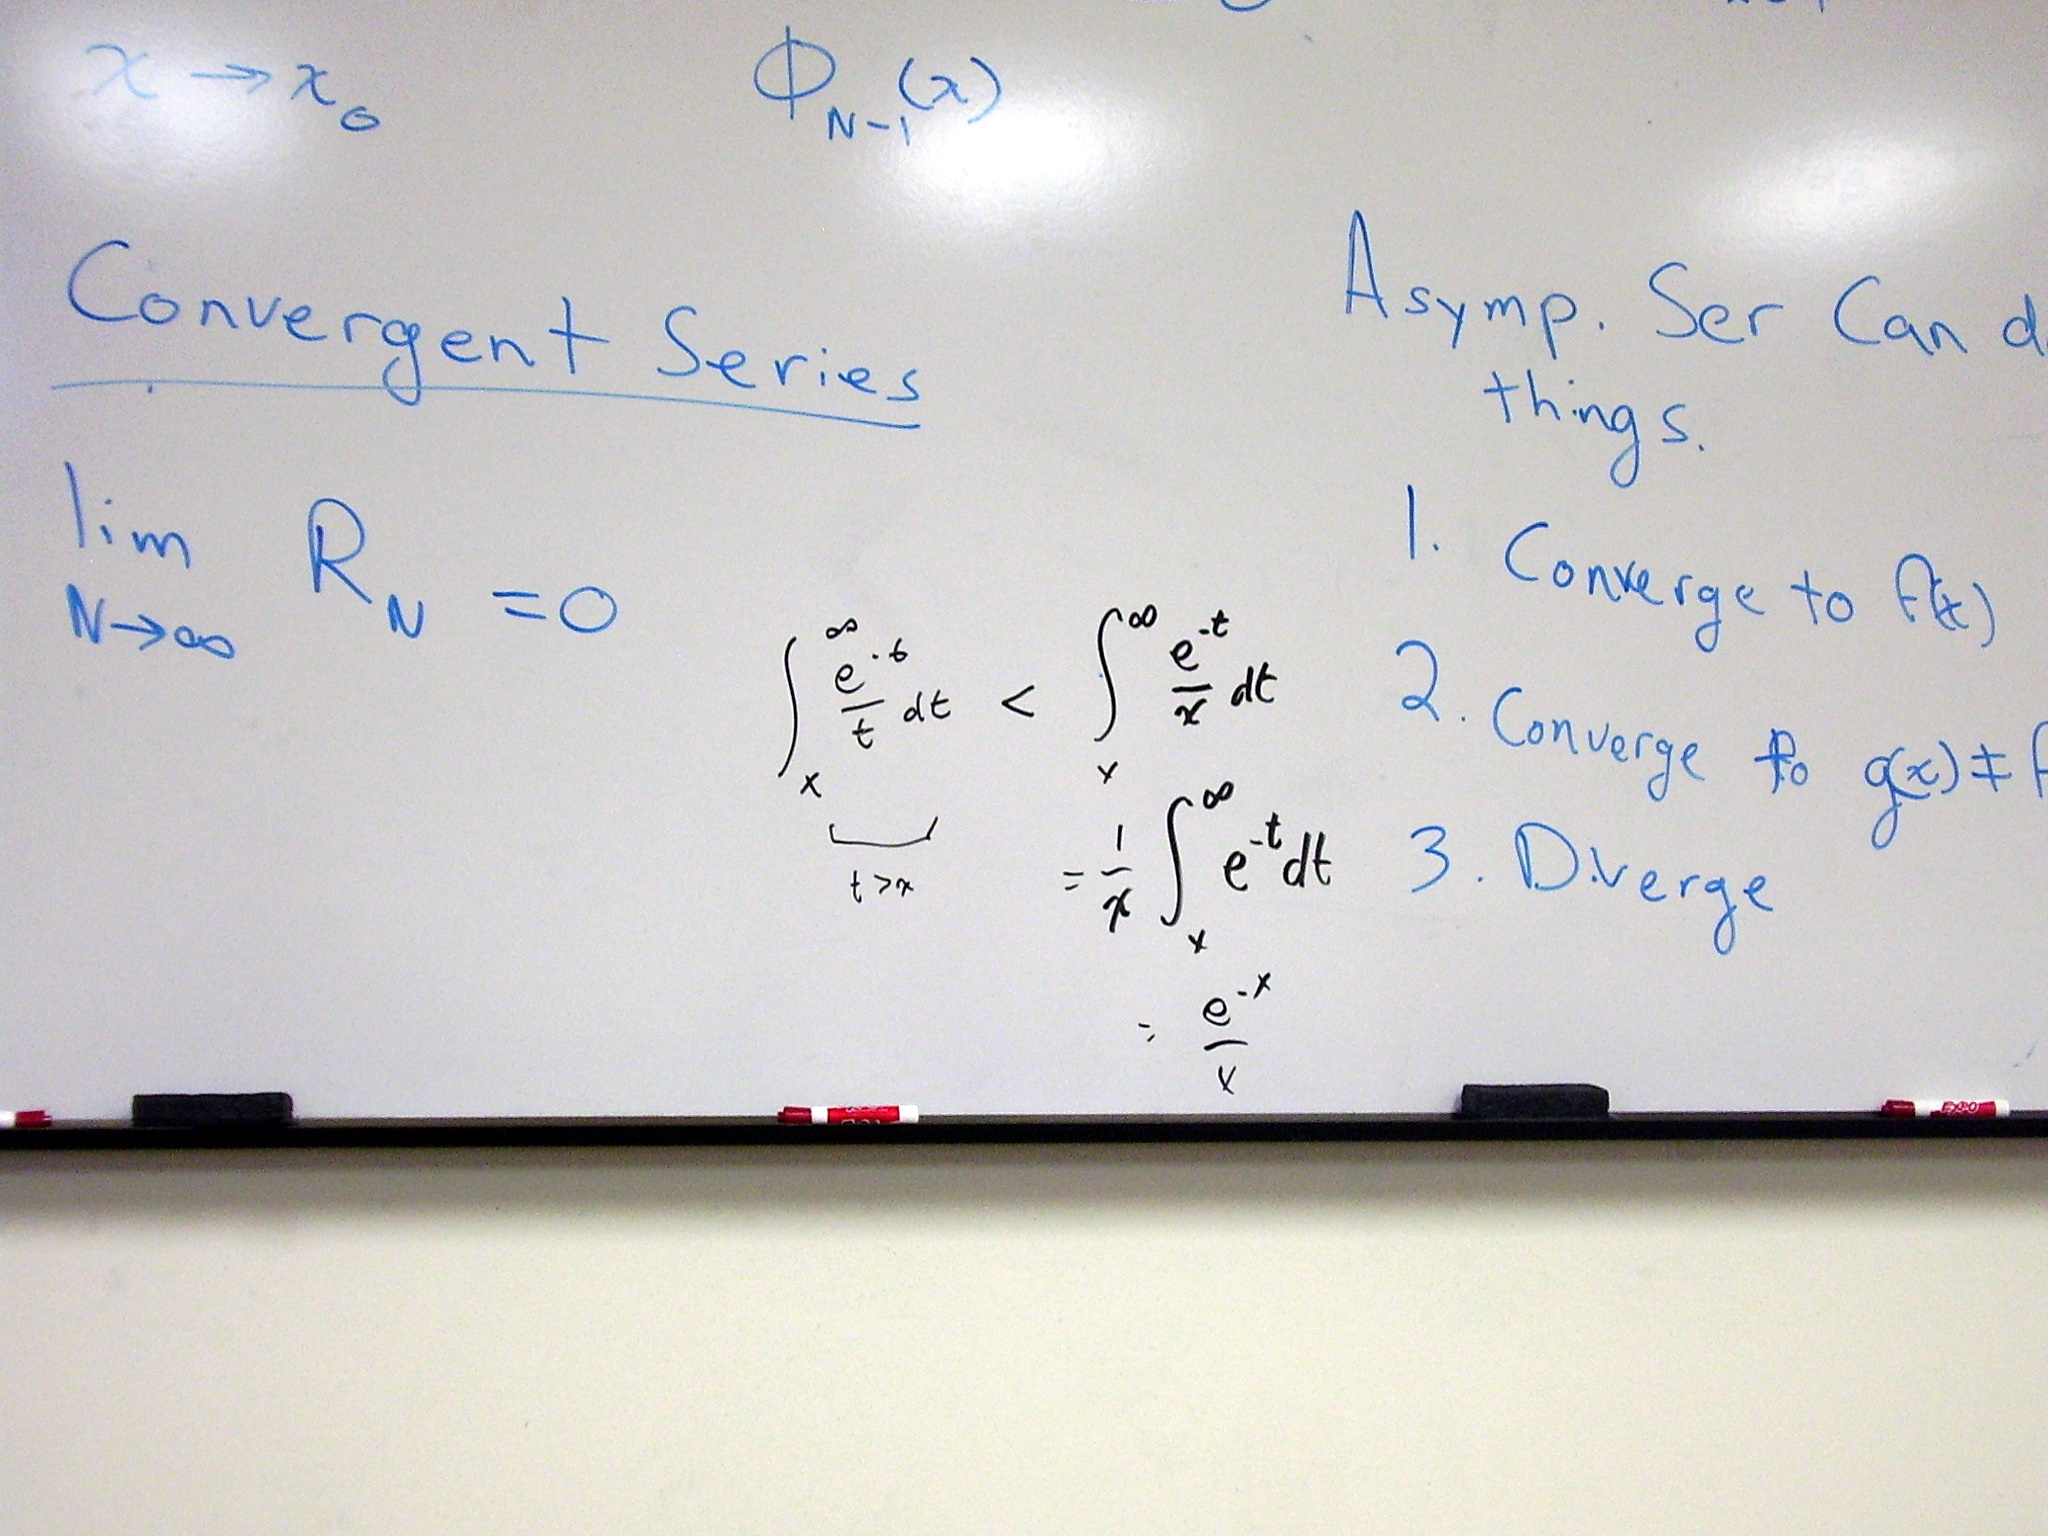 x → x₀
Φ_{N-1}(x)
Convergent Series
lim_{N→∞} R_N = 0
∫_x^∞ e^{-t}/t dt < ∫_x^∞ e^{-t}/x dt
t > x
= 1/x ∫_x^∞ e^{-t} dt
= e^{-x}/x
Asymp. Ser Can
things.
1. Converge to f(x)
2. Converge to g(x) ≠ f
3. Diverge
EXPO